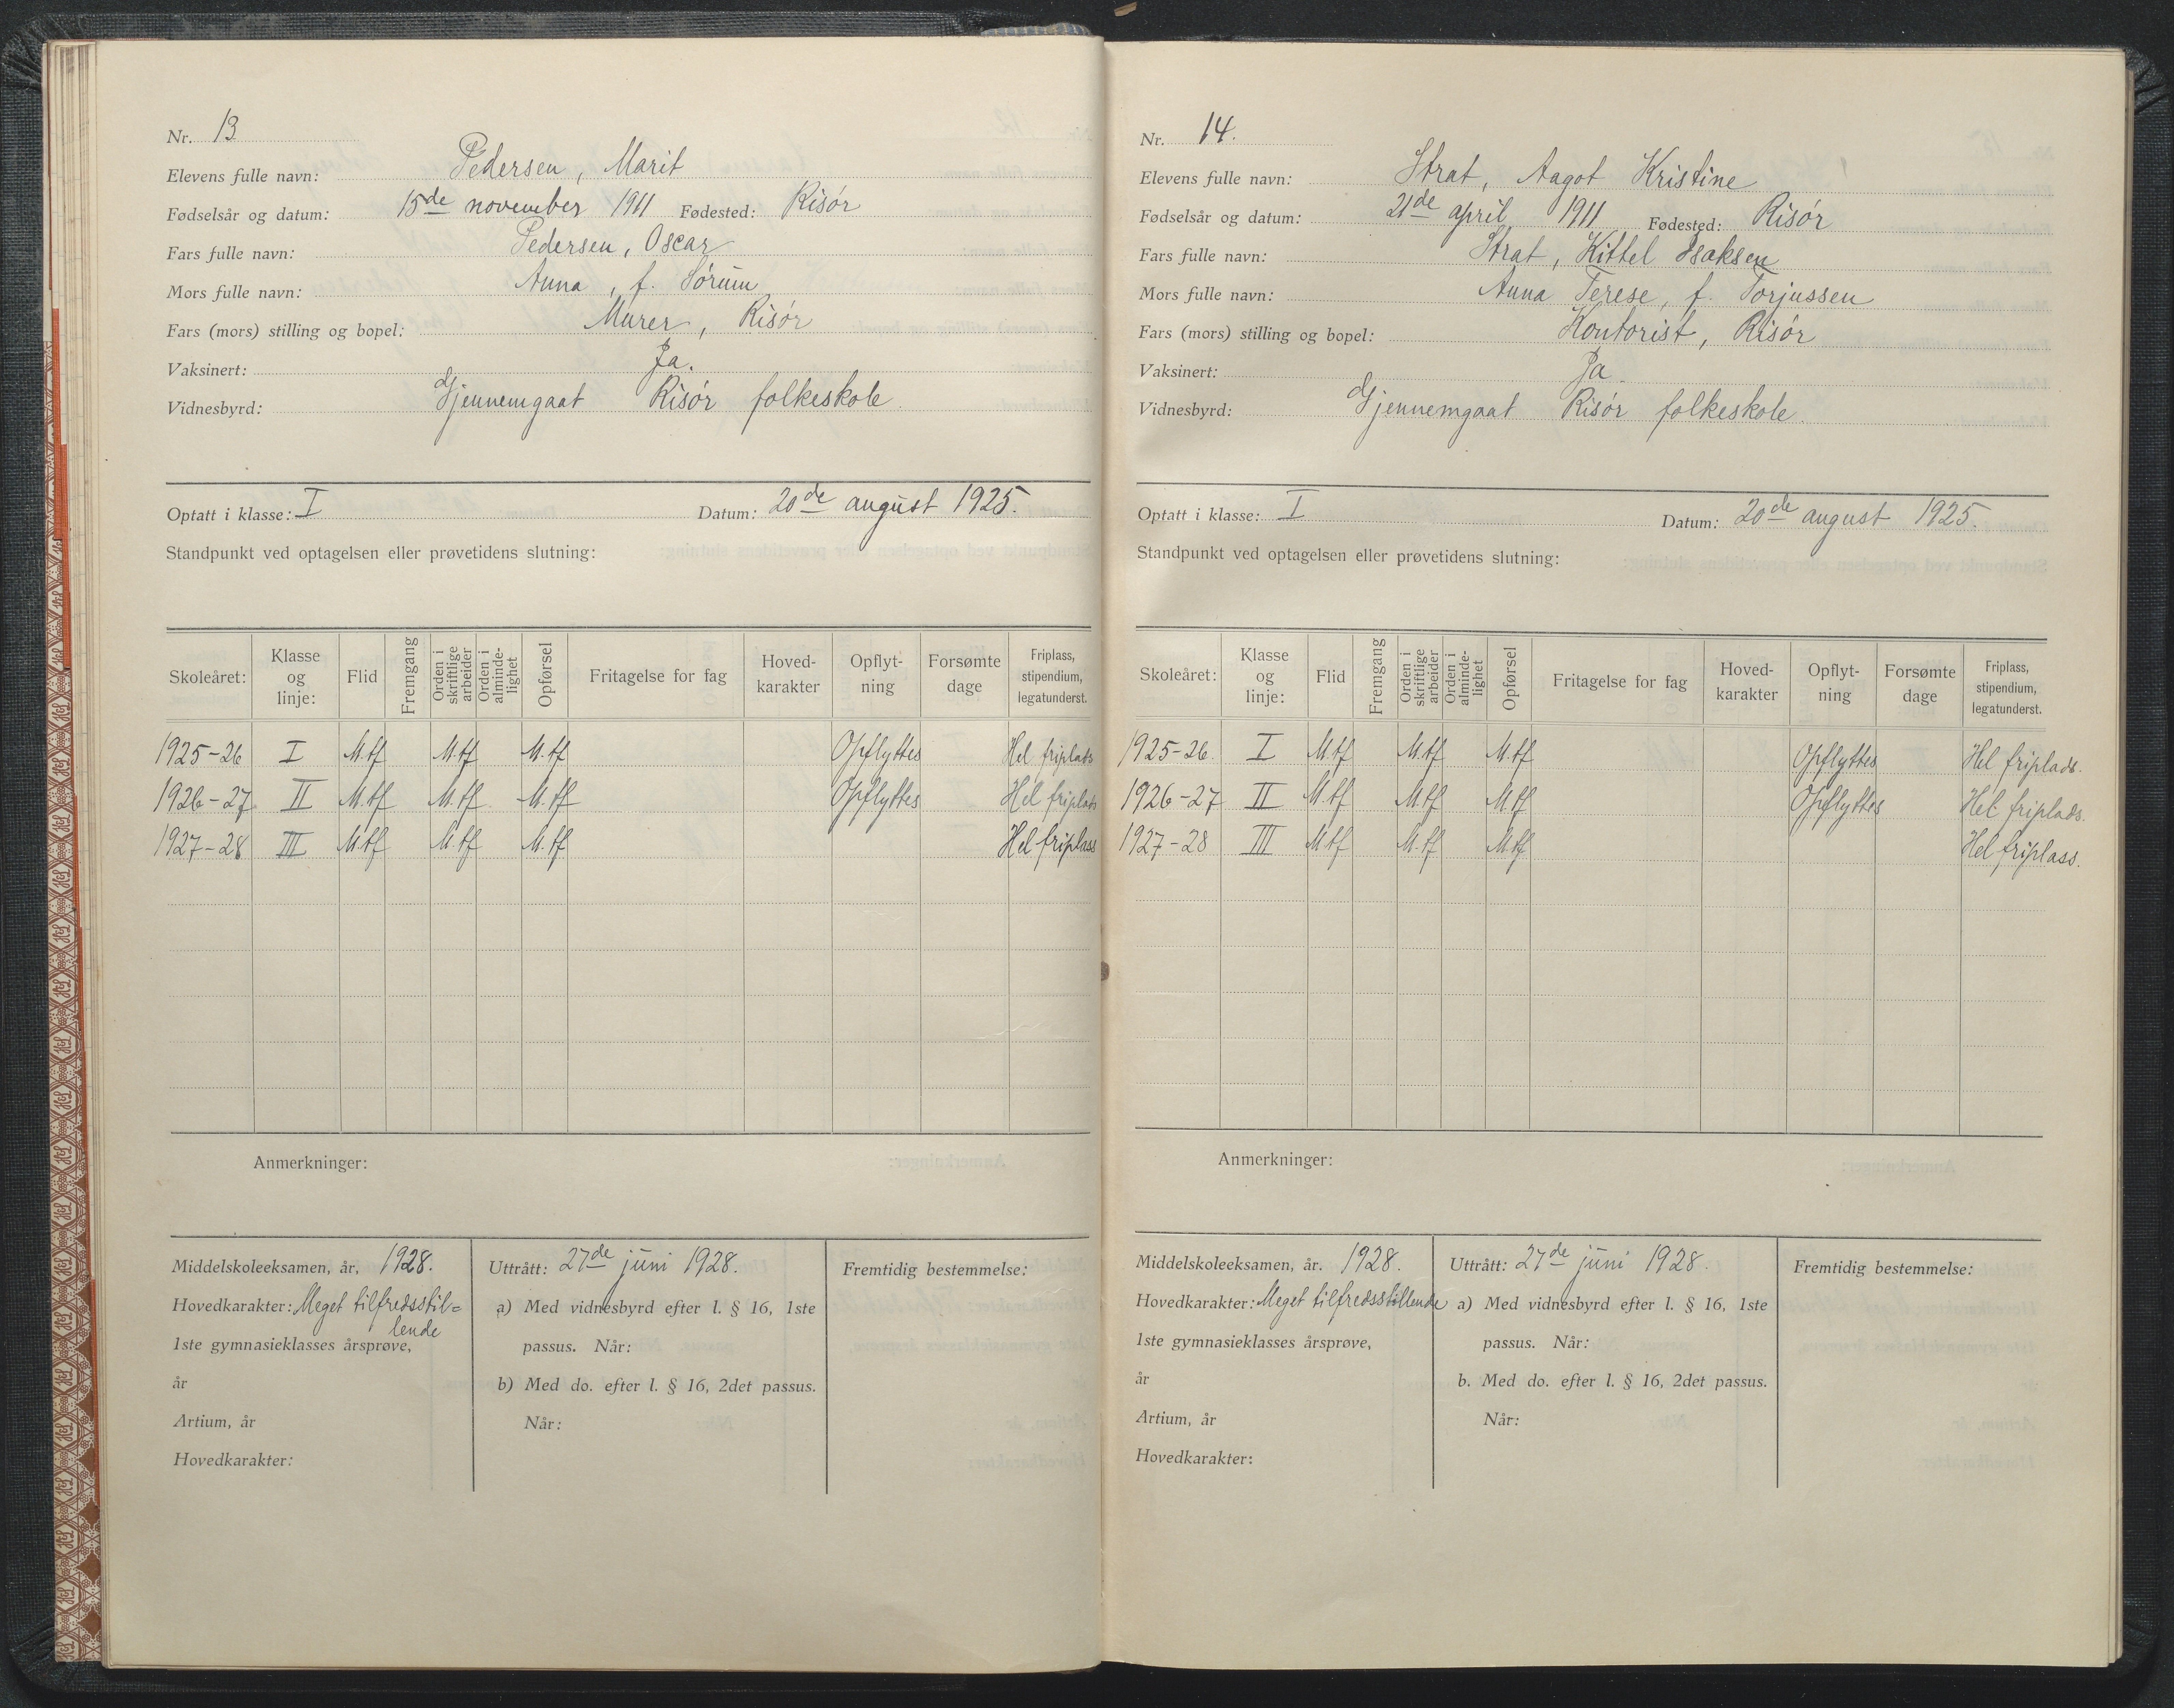 Nr. 13
Elevens fulle navn: Pedersen, Marit
Fødselsår og datum: 15de november 1911 Fødested: Risør
Fars fulle navn: Pedersen, Oscar
Mors fulle navn: Anna, f. Sørum
Fars (mors) stilling og bopel: Murer, Risør
Vaksinert: Ja.
Vidnesbyrd: Gjennemgaat Risør folkeskole.
Optatt i klasse: I Datum: 20de august 1925.
Standpunkt ved optagelsen eller prøvetidens slutning:
Skoleåret: Klasse og linje: Flid Fremgang Orden i skriftlige arbeider Orden i alminde-lighet Opførsel Fritagelse for fag Hoved-karakter Opflyt-ning Forsømte dage Friplass, stipendium, legatunderst.
1925-26 I M.tf M.tf M.tf Opflyttes Hel friplads
1926-27 II M.tf M.tf. M.tf Opflyttes Hel friplads
1927-28 III M.tf M.tf M.tf Hel friplass
Anmerkninger:
Middelskoleeksamen, år, 1928.
Hovedkarakter: Meget tilfredsstil=
lende
1ste gymnasieklasses årsprøve,
år
Artium, år
Hovedkarakter:
Uttrått: 27de juni 1928.
a) Med vidnesbyrd efter l. § 16, 1ste
passus. Når:
b) Med do. efter l. § 16, 2det passus.
Når:
Fremtidig bestemmelse:
Nr. 14.
Elevens fulle navn: Strat, Aagot Kristine
Fødselsår og datum: 21de april 1911 Fødested: Risør
Fars fulle navn: Strat, Kittel Isaksen
Mors fulle navn: Anna Terese, f. Torjussen
Fars (mors) stilling og bopel: Kontorist, Risør
Vaksinert: Ja.
Vidnesbyrd: Gjennemgaat Risør folkeskole.
Optatt i klasse: I Datum: 20de august 1925.
Standpunkt ved optagelsen eller prøvetidens slutning:
Skoleåret: Klasse og linje: Flid Fremgang Orden i skriftlige arbeider Orden i alminde-lighet Opførsel Fritagelse for fag Hoved-karakter Opflyt-ning Forsømte dage Friplass, stipendium, legatunderst.
1925-26. I M.tf M.tf M.tf Opflyttes Hel friplads.
1926-27 II M.tf M.tf M.tf Opflyttes Hel friplads.
1927-28 III M.tf M.tf M.tf Hel friplass.
Anmerkninger:
Middelskoleeksamen, år. 1928.
Hovedkarakter: Meget tilfredsstillende
1ste gymnasieklasses årsprøve,
år
Artium, år
Hovedkarakter:
Uttrått: 27de juni 1928.
a) Med vidnesbyrd efter l. § 16, 1ste
passus. Når:
b. Med do. efter l. § 16, 2det passus.
Når:
Fremtidig bestemmelse: